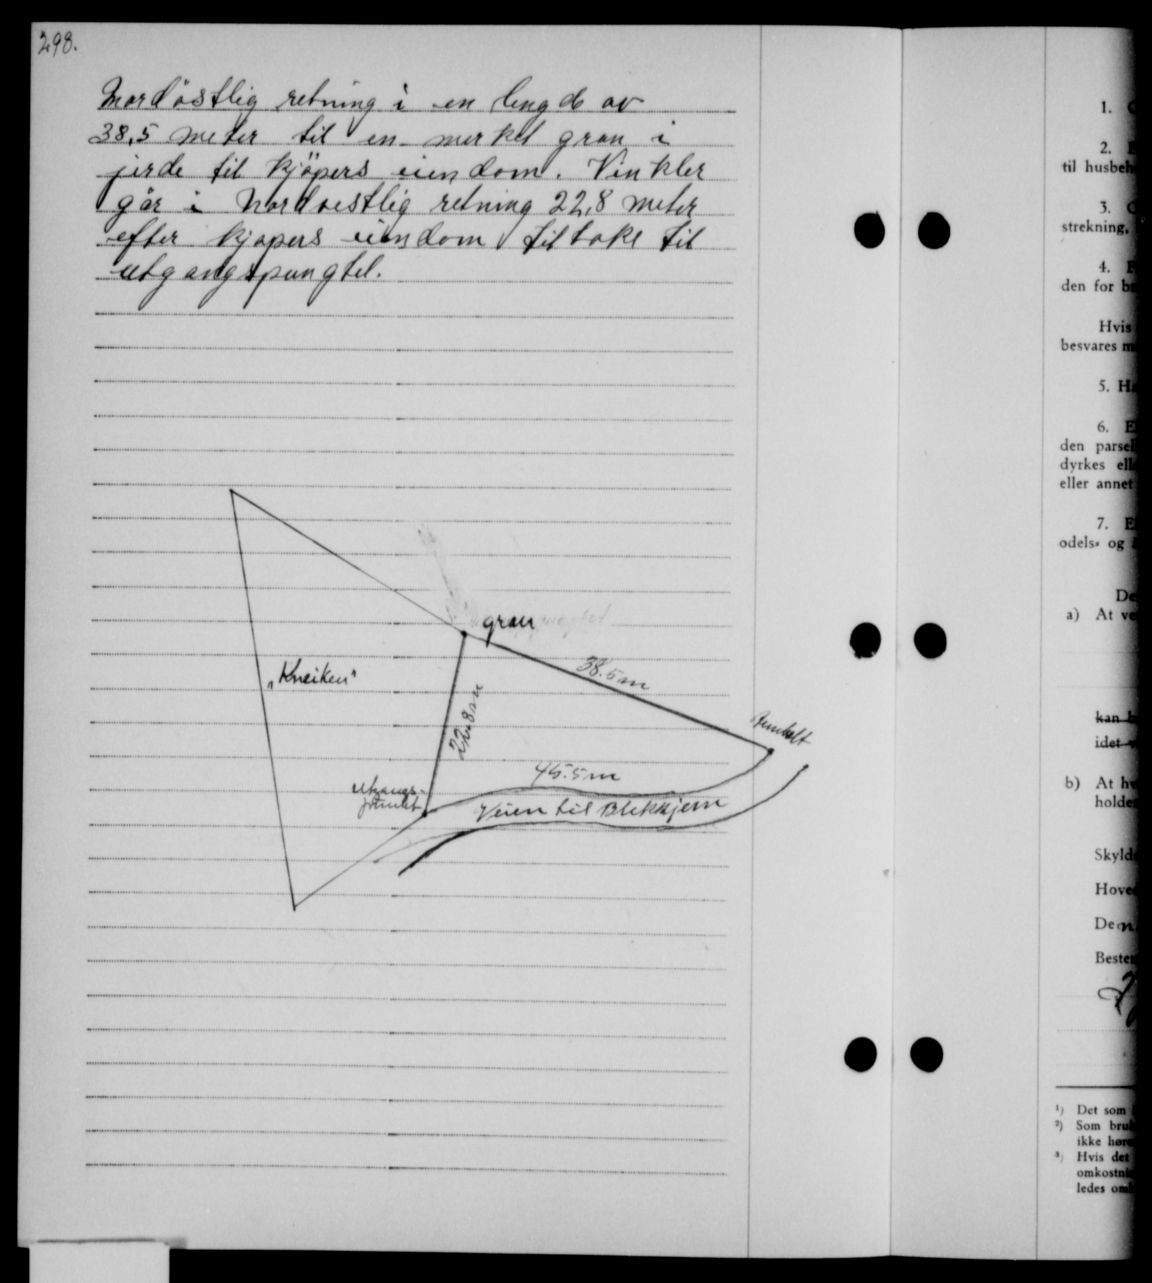 298.
Nordöstlig retning i en lengde av
38,5 meter til en merket gran i
jerde til kjöpers eiendom. Vinkler
går i Nordvestlig retning 22,8 meter
efter kjöpers eiendom tilbake til
utgangspungtet.
gran
38.5 m
"Kneiken"
22.8 m
45.5 m
Utgangs-
punkt
Veien til Blekkjern
1.
2.
til husbeh
3.
strekning,
4.
den for be
Hvis
besvares m
5. Ha
6. E
den parsel
dyrkes elle
eller annet
7. E
odels- og
De
a) At ve
kan
idet
b) At hv
holde
Skylde
Hoved
Den
Bestem
1) Det som
2) Som bruk
ikke høre
3) Hvis det
omkostnin
ledes om